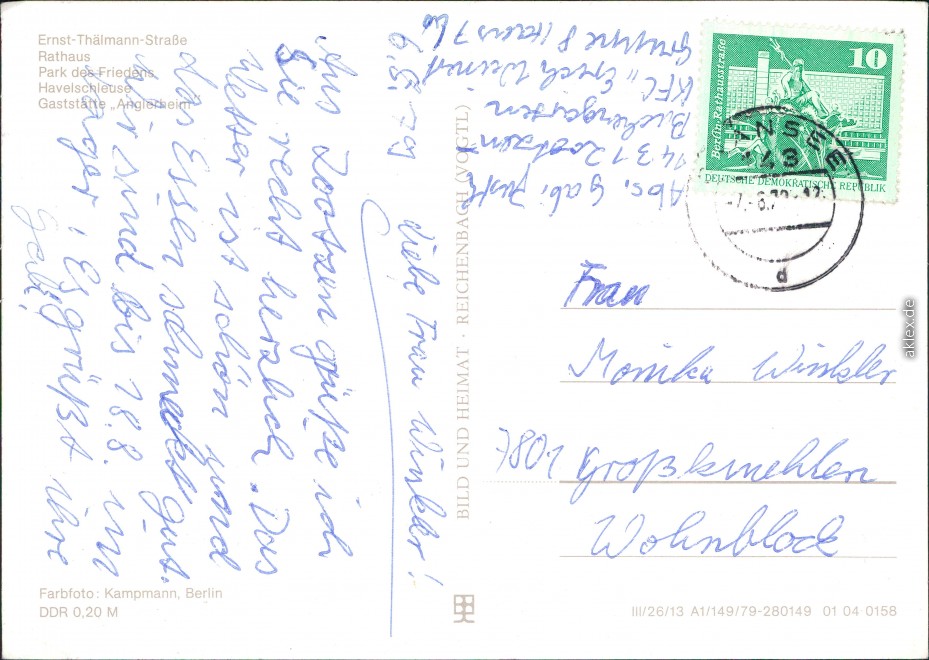 Ernst-Thälmann-Straße
Rathaus
Park des Friedens
Havelschleuse
Gaststätte „Anglerheim"
Abs. Gabi
1431 Zootzen
KFL „Erich Weinert"
Gruppe 8 Haus 7
6.8.79
Liebe Frau Winkler!
Aus Zootzen grüße ich
Sie recht herzlich. Das
Wetter ist schön und
das Essen schmeckt gut.
Wir sind bis 18.8. im
Lager. Es grüßt Ihre
Gabi!
BILD UND HEIMAT · REICHENBACH (VOGTL)
10
Berlin, Rathausstraße
DEUTSCHE DEMOKRATISCHE REPUBLIK
INSEE
143
d
Frau
Monika Winkler
7801 Großkmehlen
Wohnblock
Farbfoto: Kampmann, Berlin
DDR 0,20 M
III/26/13 A1/149/79-280149 01 04 0158
aklex.de